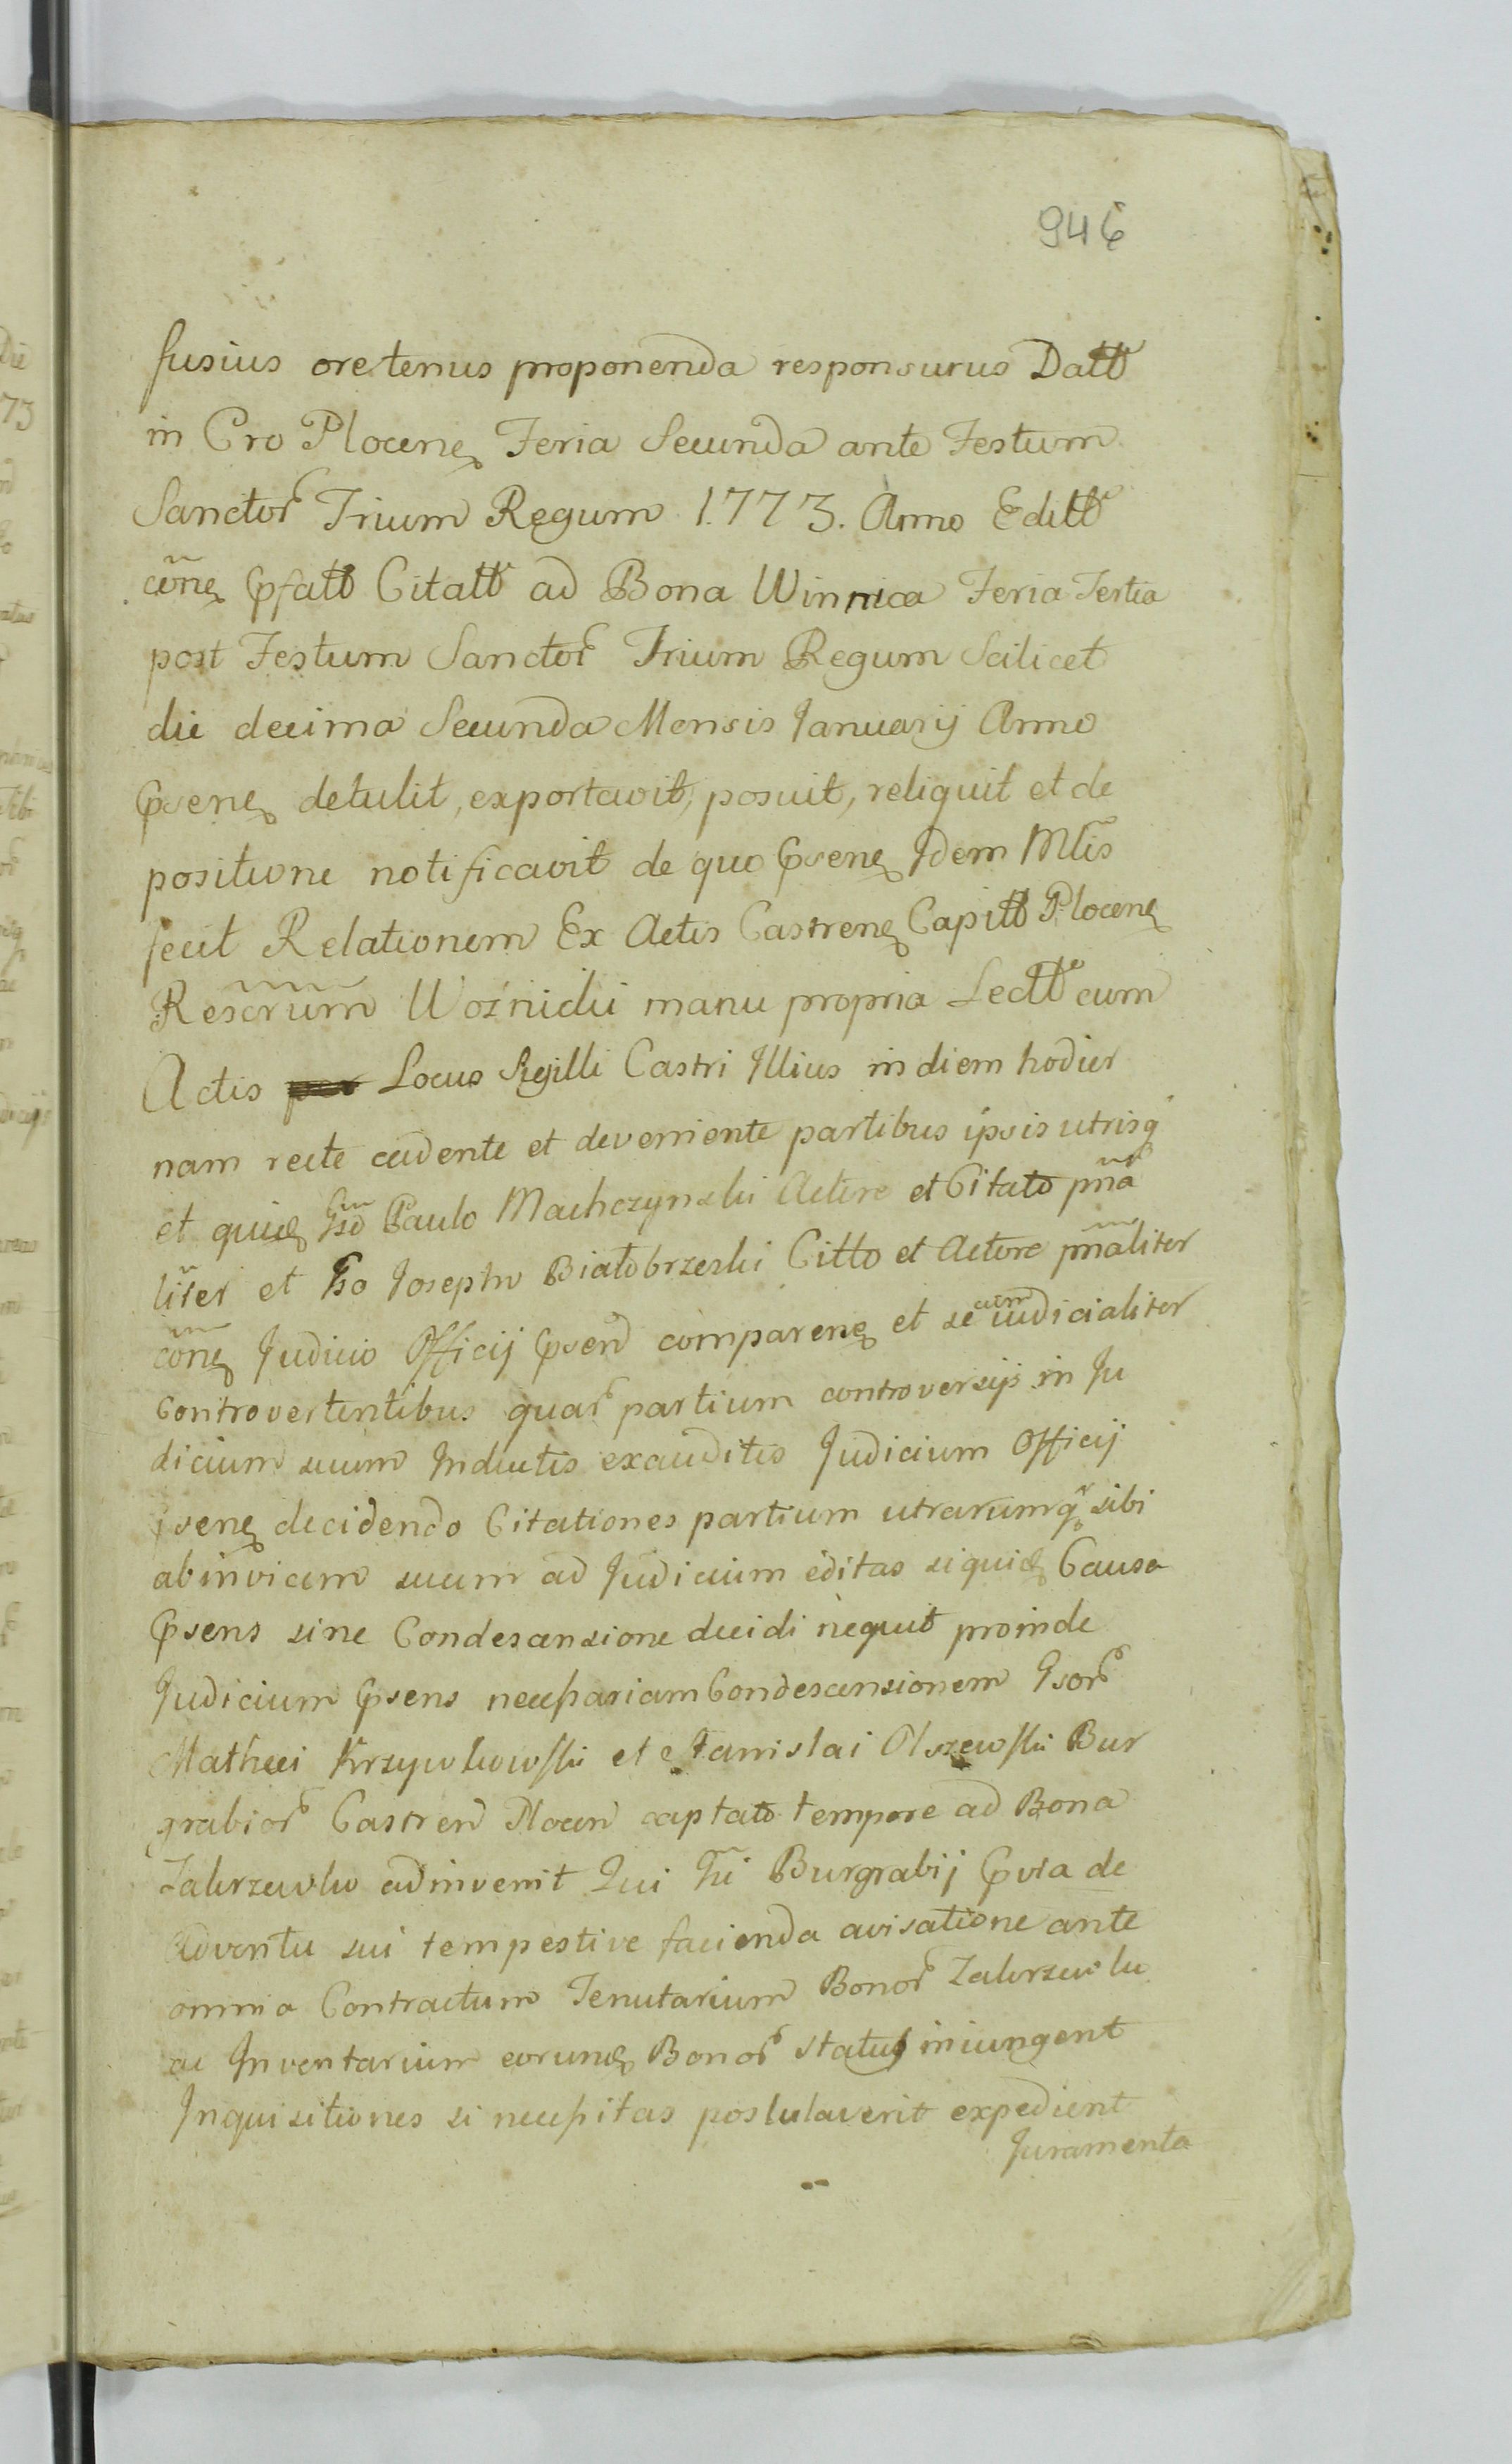 946
fusius oretenus proponenda responsurus Datt
in Cro Plocen Feria Secunda ante Festum
Sanctor Trium Regum 1773. Anno Editt
con Psatt Citatt ad Bona Winnica Feria Tertia
post Festum Sanctor Trium Regum Scilicet
die decima Secunda Mensis Januarij Anno
Psen detulit, exportavit, posuit, reliquit et de
positione notificavit de quo Psen Idem Mlis
fecit Relationem Ex Actis Castren Capitt Plocen
Rescrum Woźnicki manu propria Lectt cum
Actis Locus Sigilli Castri Illius in diem hodier
nam recte cadente et deveniente partibus ipsis utrisq
et quid Gso Paulo Machczynski Actore et Citato pna
liter et Gso Josepho Białobrzeski Citto et Actore pnaliter
con Judicio Officij Psen comparen et se cum iudicialiter
controvertentibus quar partium controversijs in Ju
dicium suum Inductis exauditis Judicium Officij
psen decidendo Citationes partium utrarumq sibi
abinvicem suum ad Judicium editas siquid Causa
Psens sine Condescensione decidi nequit proinde
Judicium Psens necessariam Condescensionem Gsor
Mathaei Krzywkowski et Stanislai Olszewski Bur
grabior Castren Plocen captato tempore ad Bona
Zakrzewko adinvenit Qui Gsi Burgrabij Pvia de
Adventu sui tempestive facienda avisatione ante
omnia Contractum Tenutarium Bonor Zakrzewko
ac Inventarium eorund Bonor status iniungent
Inquisitiones si necessitas postulaverit expedient
Juramenta